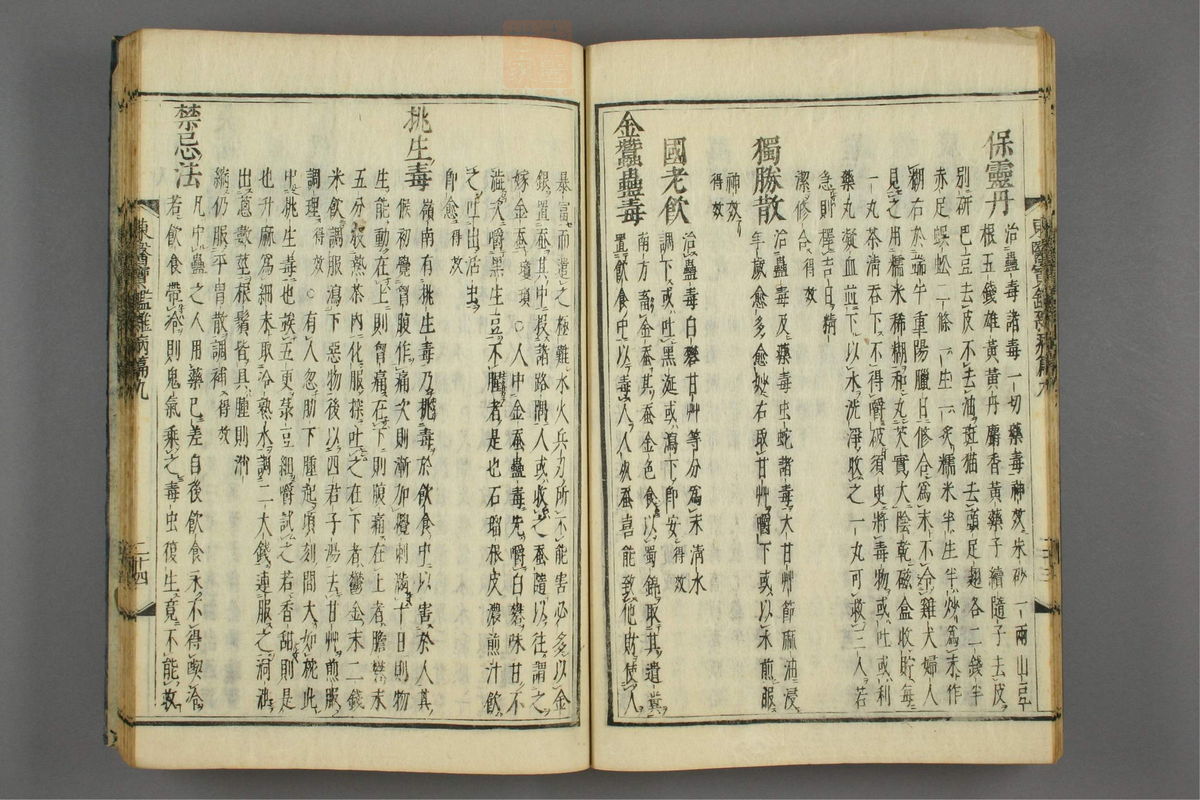 保靈丹 治蠱毒諸毒一切藥毒神效朱砂一兩山豆
根五錢雄黃黃丹麝香黃藥子續隨子去皮
別研巴豆去皮不去油斑猫去頭足翅各二錢半
赤足蜈蚣二條一生一炙糯米半生半炒爲末作
糊右於端午重陽臘日修合爲末不令雞犬婦人
見之用糯米稀糊和丸芡實大陰乾磁盒收貯每
一丸茶淸呑下不得嚼破須臾將毒物或吐或利
藥丸凝血並下以水洗淨收之一丸可救三人若
急則擇吉日精
潔修合得效
獨勝散 治蠱毒及藥毒虫蛇諸毒大甘艸節麻油浸
年歲愈多愈妙右取甘艸嚼下或以水煎服
神效得效
國老飮 治蠱毒白礬甘艸等分爲末淸水
調下或吐黑涎或瀉下卽安得效
金蠶蠱毒 南方畜金蚕其蚕金色食以蜀錦取其遺糞
置飮食中以毒人人必蚕喜能致他財使人
暴富而遣之極難水火兵刃所不能害必多以金
銀置蚕其中投諸路隅人或收之蚕隨以往謂之
嫁金蚕瑣瑣○人中金蚕蠱毒先嚼白礬味甘不
澁次嚼黑生豆不腥者是也石榴根皮濃煎汁飮
之吐出活虫
卽愈得效
挑生毒 嶺南有挑生毒乃挑毒於飮食中以害於人其
候初覺胷腹作痛次則漸加攪刺滿十日則物
生能動在上則胷痛在下則腹痛在上者膽礬末
五分投熱茶內化服探吐之在下者鬱金末二錢
米飮調服瀉下惡物後以四君子湯去甘艸煎服
調理得效○有人忽肋下腫起頃刻間大如椀此
中挑生毒也俟五更菉豆細嚼試之若香甜則是
也升麻爲細末取冷熟水調二大錢連服之洞泄
出葱數莖根鬚皆具腫則消
續仍服平胃散調補得效
禁忌法 凡中蠱之人用藥已差自後飮食永不得喫冷
若飮食帶冷則鬼氣乘之毒虫復生竟不能救
東醫寶鑑雜病篇九
二十四